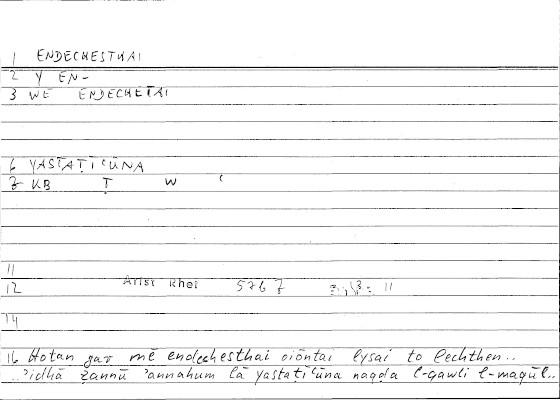 1 ENDECHESTHAI
2 Y EN-
3 WE ENDECHETAI
6 YASTAṬĪʿŪNA
7 KB Ṭ W ʿ
11
12 Arist Rhet 576 7 11
14
16 Hotan gar mē endechesthai oiōntai lysai to lechthen..
..ʾidhā ẓannū ʾannahum lā yastaṭīʿūna naqḍa l-qawli l-maqūl..